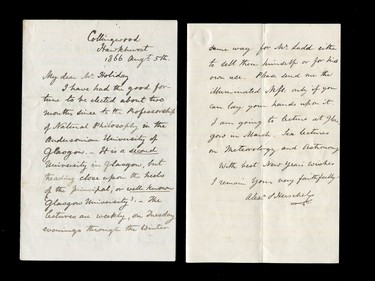 Collingwood
Hawkhurst
1866 Augt. 5th.
My dear Mr. Holiday
I have had the good for-
tune to be elected about two
months since to the Professorship
of Natural Philosophy in the
Andersonian University of
Glasgow. - It is a second
University in Glasgow, but
treading close upon the heels
of the principal, or well known
"Glasgow University". - The
lectures are weekly, on Tuesday
evenings through the Winter
same way for Mr. Ladd either
to sell them himself or for his
own use. Please send me the
Illuminated MSS. only if you
can lay your hands upon it.
I am going to lecture at Glas-
gow in March. Six lectures
on Meteorology and Astronomy
With best New Year's wishes
I remain Yours very faithfully
Alexr. S Herschel